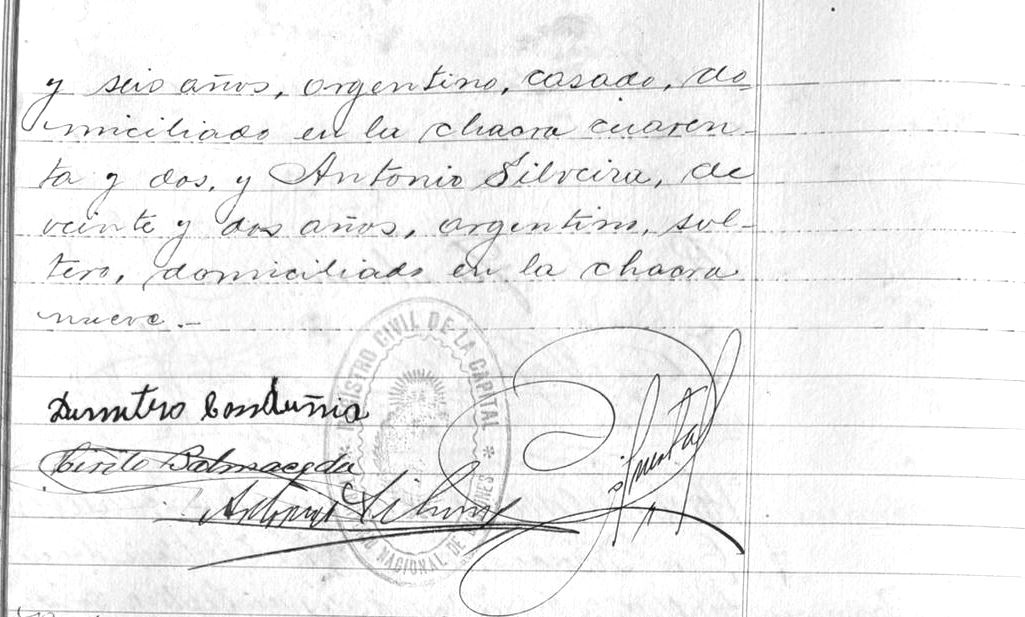 y seis años, argentino, casado, do=
miciliado en la chacra cuaren-
ta y dos, y Antonio Silveira, de
veinte y dos años, argentino, sol-
tero, domiciliado en la chacra
nueve.-
REGISTRO CIVIL DE LA CAPITAL
NACIONAL DE MISIONES
Cirilo Balmaceda
Antonio Silveira